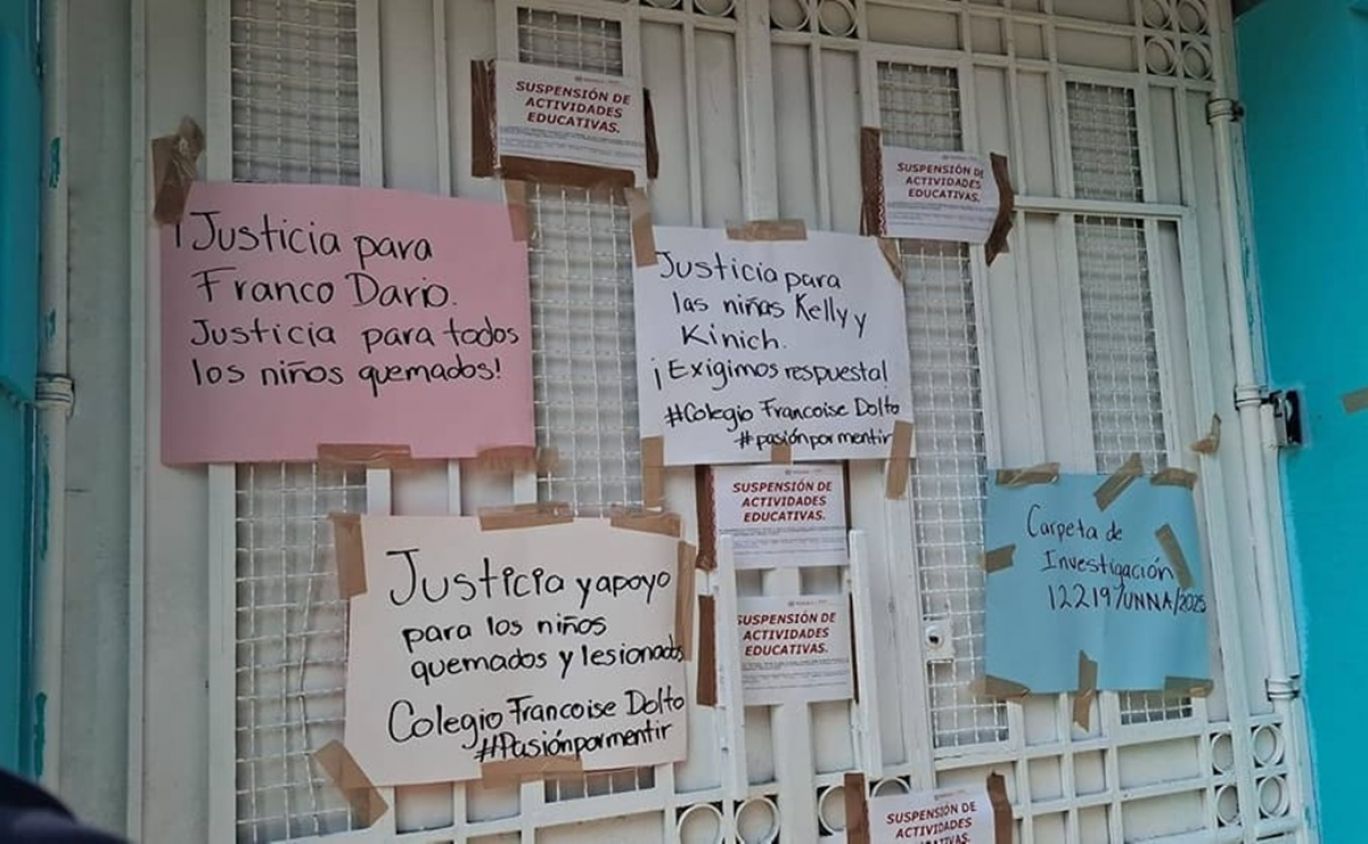 SUSPENSIÓN DE
ACTIVIDADES
EDUCATIVAS.
SUSPENSIÓN DE
ACTIVIDADES
EDUCATIVAS.
¡Justicia para
Franco Dario.
Justicia para todos
los niños quemados!
Justicia para
las niñas Kelly y
Kinich.
¡Exigimos respuesta!
#Colegio Francoise Dolto
#pasiónpormentir
SUSPENSIÓN DE
ACTIVIDADES
EDUCATIVAS.
Carpeta de
Investigación
12219/UNNA/2025
Justicia y apoyo
para los niños
quemados y lesionados
Colegio Francoise Dolto
#Pasiónpormentir
SUSPENSIÓN DE
ACTIVIDADES
EDUCATIVAS.
SUSPENSIÓN DE
ACTIVIDADES